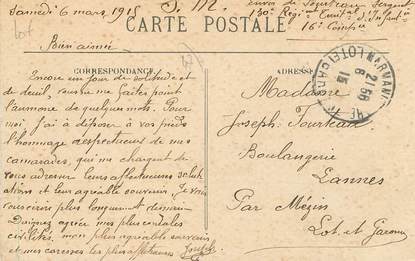 Samedi 6 mars 1915 S. M.
Envoi de Tourteau Sergent
130e Régt d'Infant
16e Compie
CARTE POSTALE
Lot
Bien aimée
CORRESPONDANCE
Encore un jour de solitude et
de deuil, vous ne faites point
l'aumone de quelques mots. Pour
moi j'ai à déposer à vos pieds
l'hommage respectueux de mes
camarades, qui me chargent de
vous adresser leurs affectueuses saluta
tions et leur agréable souvenir. Je vous
plus longuement demain
Daignez agréer mes plus cordiales
civilités, mon plus agréable souvenir
et mes caresses les plus affectueuses Joseph
ADRESSE
Madame
Joseph Tourteau
Boulangerie
Lannes
Par Mézin
Lot et Garonne
MARMANDE
LOT-ET-GARONNE
21 56
6
15